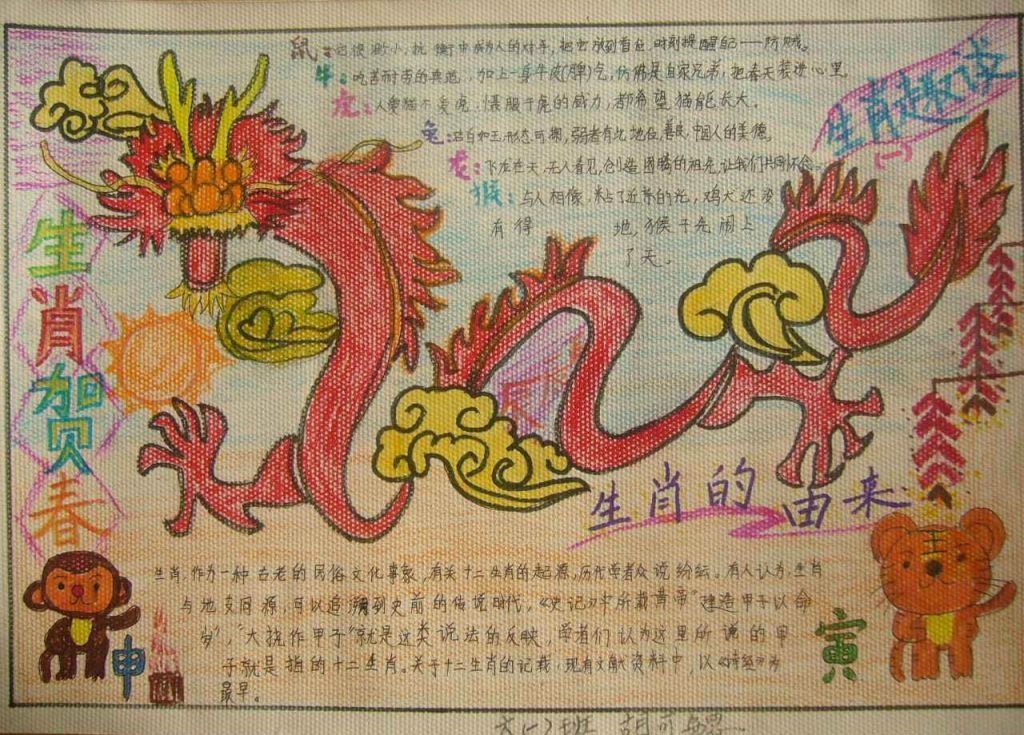 生肖趣谈
(一)
鼠：它很渺小,抗衡中成为人的对手,把它放到首位,时刻提醒自己——防贼。
牛：吃苦耐劳的典范,加上一身牛皮(脾)气,仿佛是自家兄弟,把春天装进心里。
虎：人要猫不要虎,慑服于虎的威力,都希望猫能长大。
兔：洁白如玉,形态可掬,弱者有此地位,善良,中国人的美德。
龙：飞龙在天,无人看见,创造图腾的祖先,让我们共同怀念。
猴：与人相像,粘了近亲的光,鸡犬还没
有得 地,猴子先闹上
了天。
生肖贺春
生肖的由来
生肖,作为一种古老的民俗文化事象,有关十二生肖的起源,历代学者众说纷纭。有人认为,生肖
与地支同源,可以追溯到史前的传说时代,《史记》中所载黄帝"建造甲子以命
岁","大挠作甲子"就是这类说法的反映,学者们认为这里所说的甲
子就是指的十二生肖。关于十二生肖的记载,现有文献资料中,以《诗经》为
最早。
申
寅
六(一)班 胡